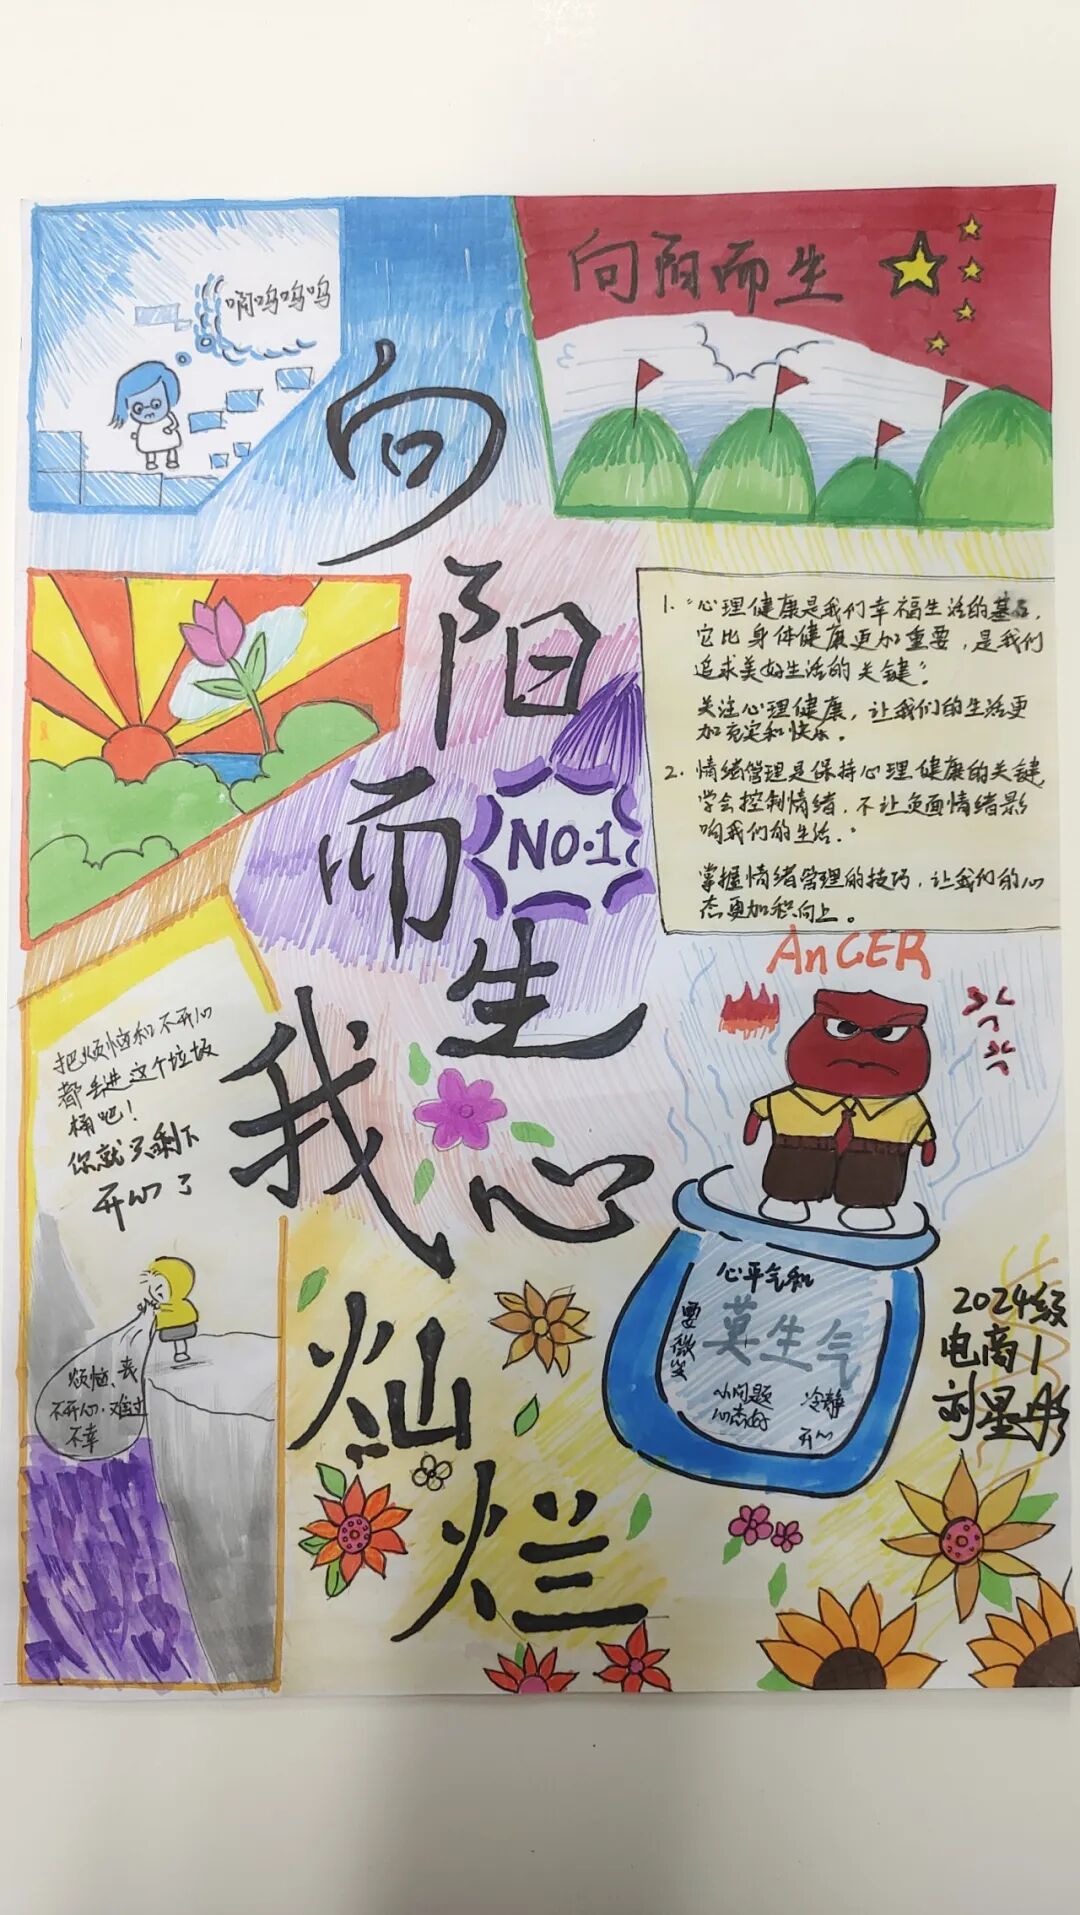 啊呜呜呜
向阳而生
向阳而生
我心
灿烂
NO.1
1."心理健康是我们幸福生活的基石,
它比身体健康更加重要,是我们
追求美好生活的关键"。
关注心理健康,让我们的生活更
加充实和快乐。
2.情绪管理是保持心理健康的关键,
学会控制情绪,不让负面情绪影
响我们的生活."
掌握情绪管理的技巧,让我们的心
态更加积向上。
AnGER
把烦恼和不开心
都丢进这个垃圾
桶吧!
你就只剩下
开心了
烦恼、丧
不开心,难过
不幸
心平气和
要微笑
莫生气
小问题
心态好
冷静
开心
2024级
电商1
刘星彤